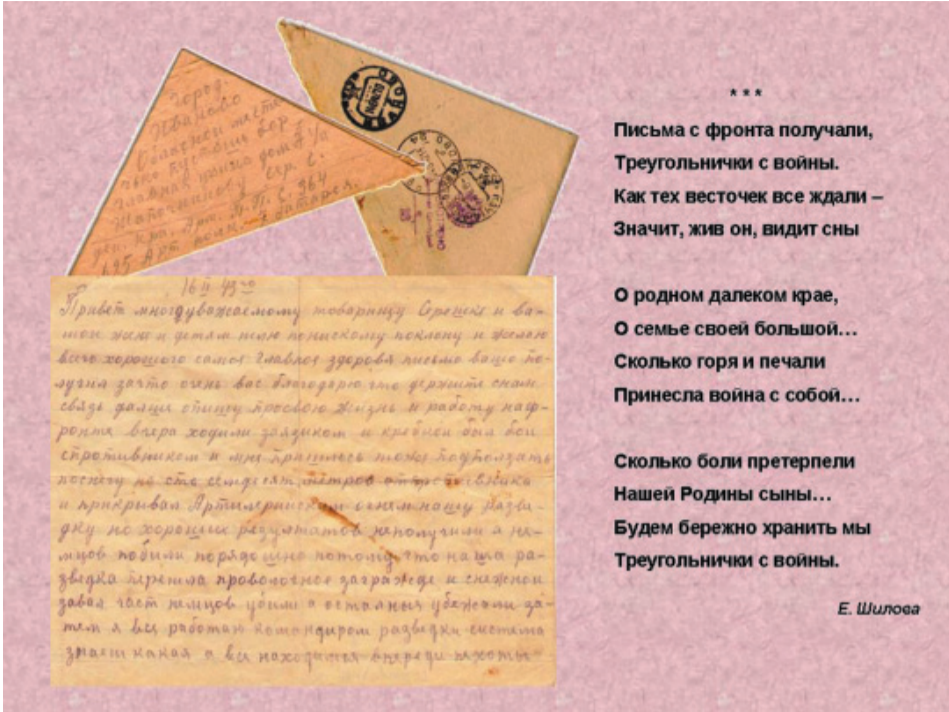 город.
Иваново
главная улица дом
695 Арт. полк. батарея.
16 II 43го
Привет многоуважаемому товарищу Сережке и ва-
шой жене и детям шлю по нискому поклону и желаю
всего хорошого самое главное здоровя письмо ваше по-
лучил зашто очень вас благодарю что держите снам
связь далше опишу просвою жизнь и работу наф-
ронте вчера ходили заязиком и крепкой был бой
спротивником и мне пришлось тоже подползать
поснегу на сто семдесят метров отпротивника
и прикрывал Артилерийским огнем нашу разве-
дку но хороших резултатов неполучили а не-
мцов побили порядошно потому что наша ра-
зведка перешла проволочное загражде и снежной
завал част немцов убили а осталныя убежали за-
тем я все работаю командиром разведки система
знаеш какая а все находимся впереди пехоты
* * *
Письма с фронта получали,
Треугольнички с войны.
Как тех весточек все ждали –
Значит, жив он, видит сны
О родном далеком крае,
О семье своей большой…
Сколько горя и печали
Принесла война с собой…
Сколько боли претерпели
Нашей Родины сыны…
Будем бережно хранить мы
Треугольнички с войны.
Е. Шилова